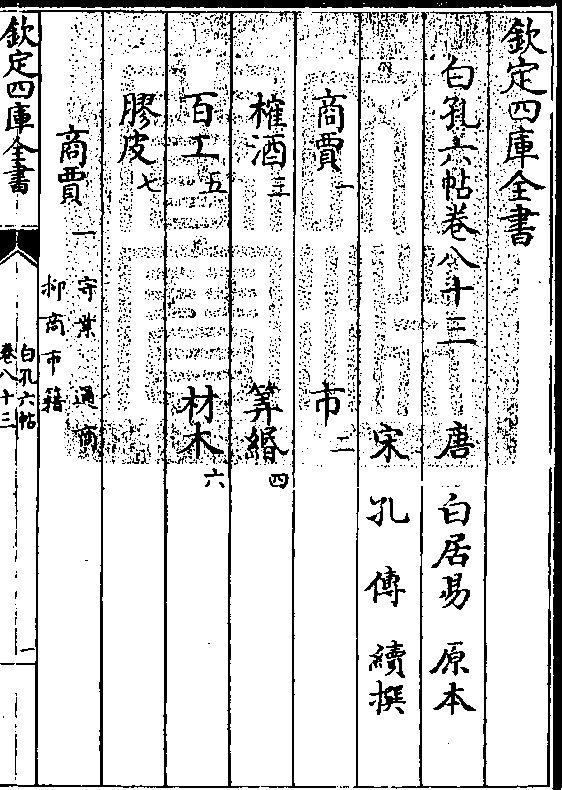 欽定四庫全書
白孔六帖卷八十三
唐 白居易 原本
宋 孔傳 續撰
商賈一 市二
榷酒三 筭緡四
百工五 材木六
膠皮七
商賈一 守業 通商
抑商市籍
欽定四庫全書
白孔六帖
卷八十三
一